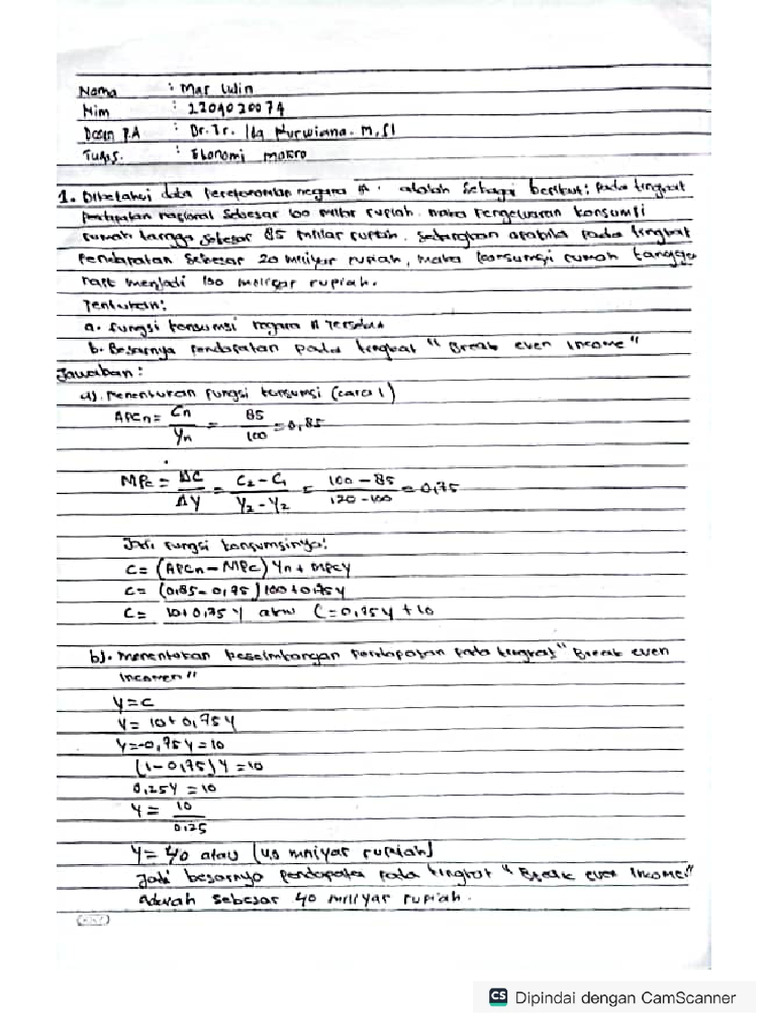 Nama : Mar lulin
Nim : 2204020074
Dosen P.A : Dr. Ir. Ida Nurwiana. M,Si
Tugas. : Ekonomi makro
1. Diketahui data perekonomian negara A. adalah sebagai berikut: pada tingkat
pendapatan nasional sebesar 100 miliar rupiah. maka Pengeluaran konsumsi
rumah tangga sebesar 85 miliar rupiah. sedangkan apabila pada tingkat
pendapatan sebesar 20 miliyar rupiah, maka konsumsi rumah tangga
naik menjadi 100 miliyar rupiah.
Tentukan:
a. fungsi konsumsi negara A Tersebut
b. Besarnya pendapatan pada tingkat "Break even income"
Jawaban:
a). Menentukan fungsi konsumsi (cara 1)
APCn = Cn / Yn = 85 / 100 = 0,85
MPC = ΔC / ΔY = C2 - C1 / Y2 - Y2 = 100 - 85 / 120 - 100 = 0,75
Jadi fungsi konsumsinya:
C = (APCn - MPC) Yn + MPCY
C = (0,85 - 0,75) 100 + 0,75Y
C = 10 + 0,75 Y atau C = 0,75Y + 10
b). Menentukan keseimbangan pendapatan pada tingkat "Break even
Incomen"
Y = C
Y = 10 + 0,75Y
Y = -0,75Y = 10
(1 - 0,75)Y = 10
0,25Y = 10
Y = 10 / 0,25
Y = 40 atau (40 miliyar rupiah)
Jadi besarnya pendapata pada tingkat "Break even Income"
Adalah sebesar 40 miliyar rupiah.
CS Dipindai dengan CamScanner